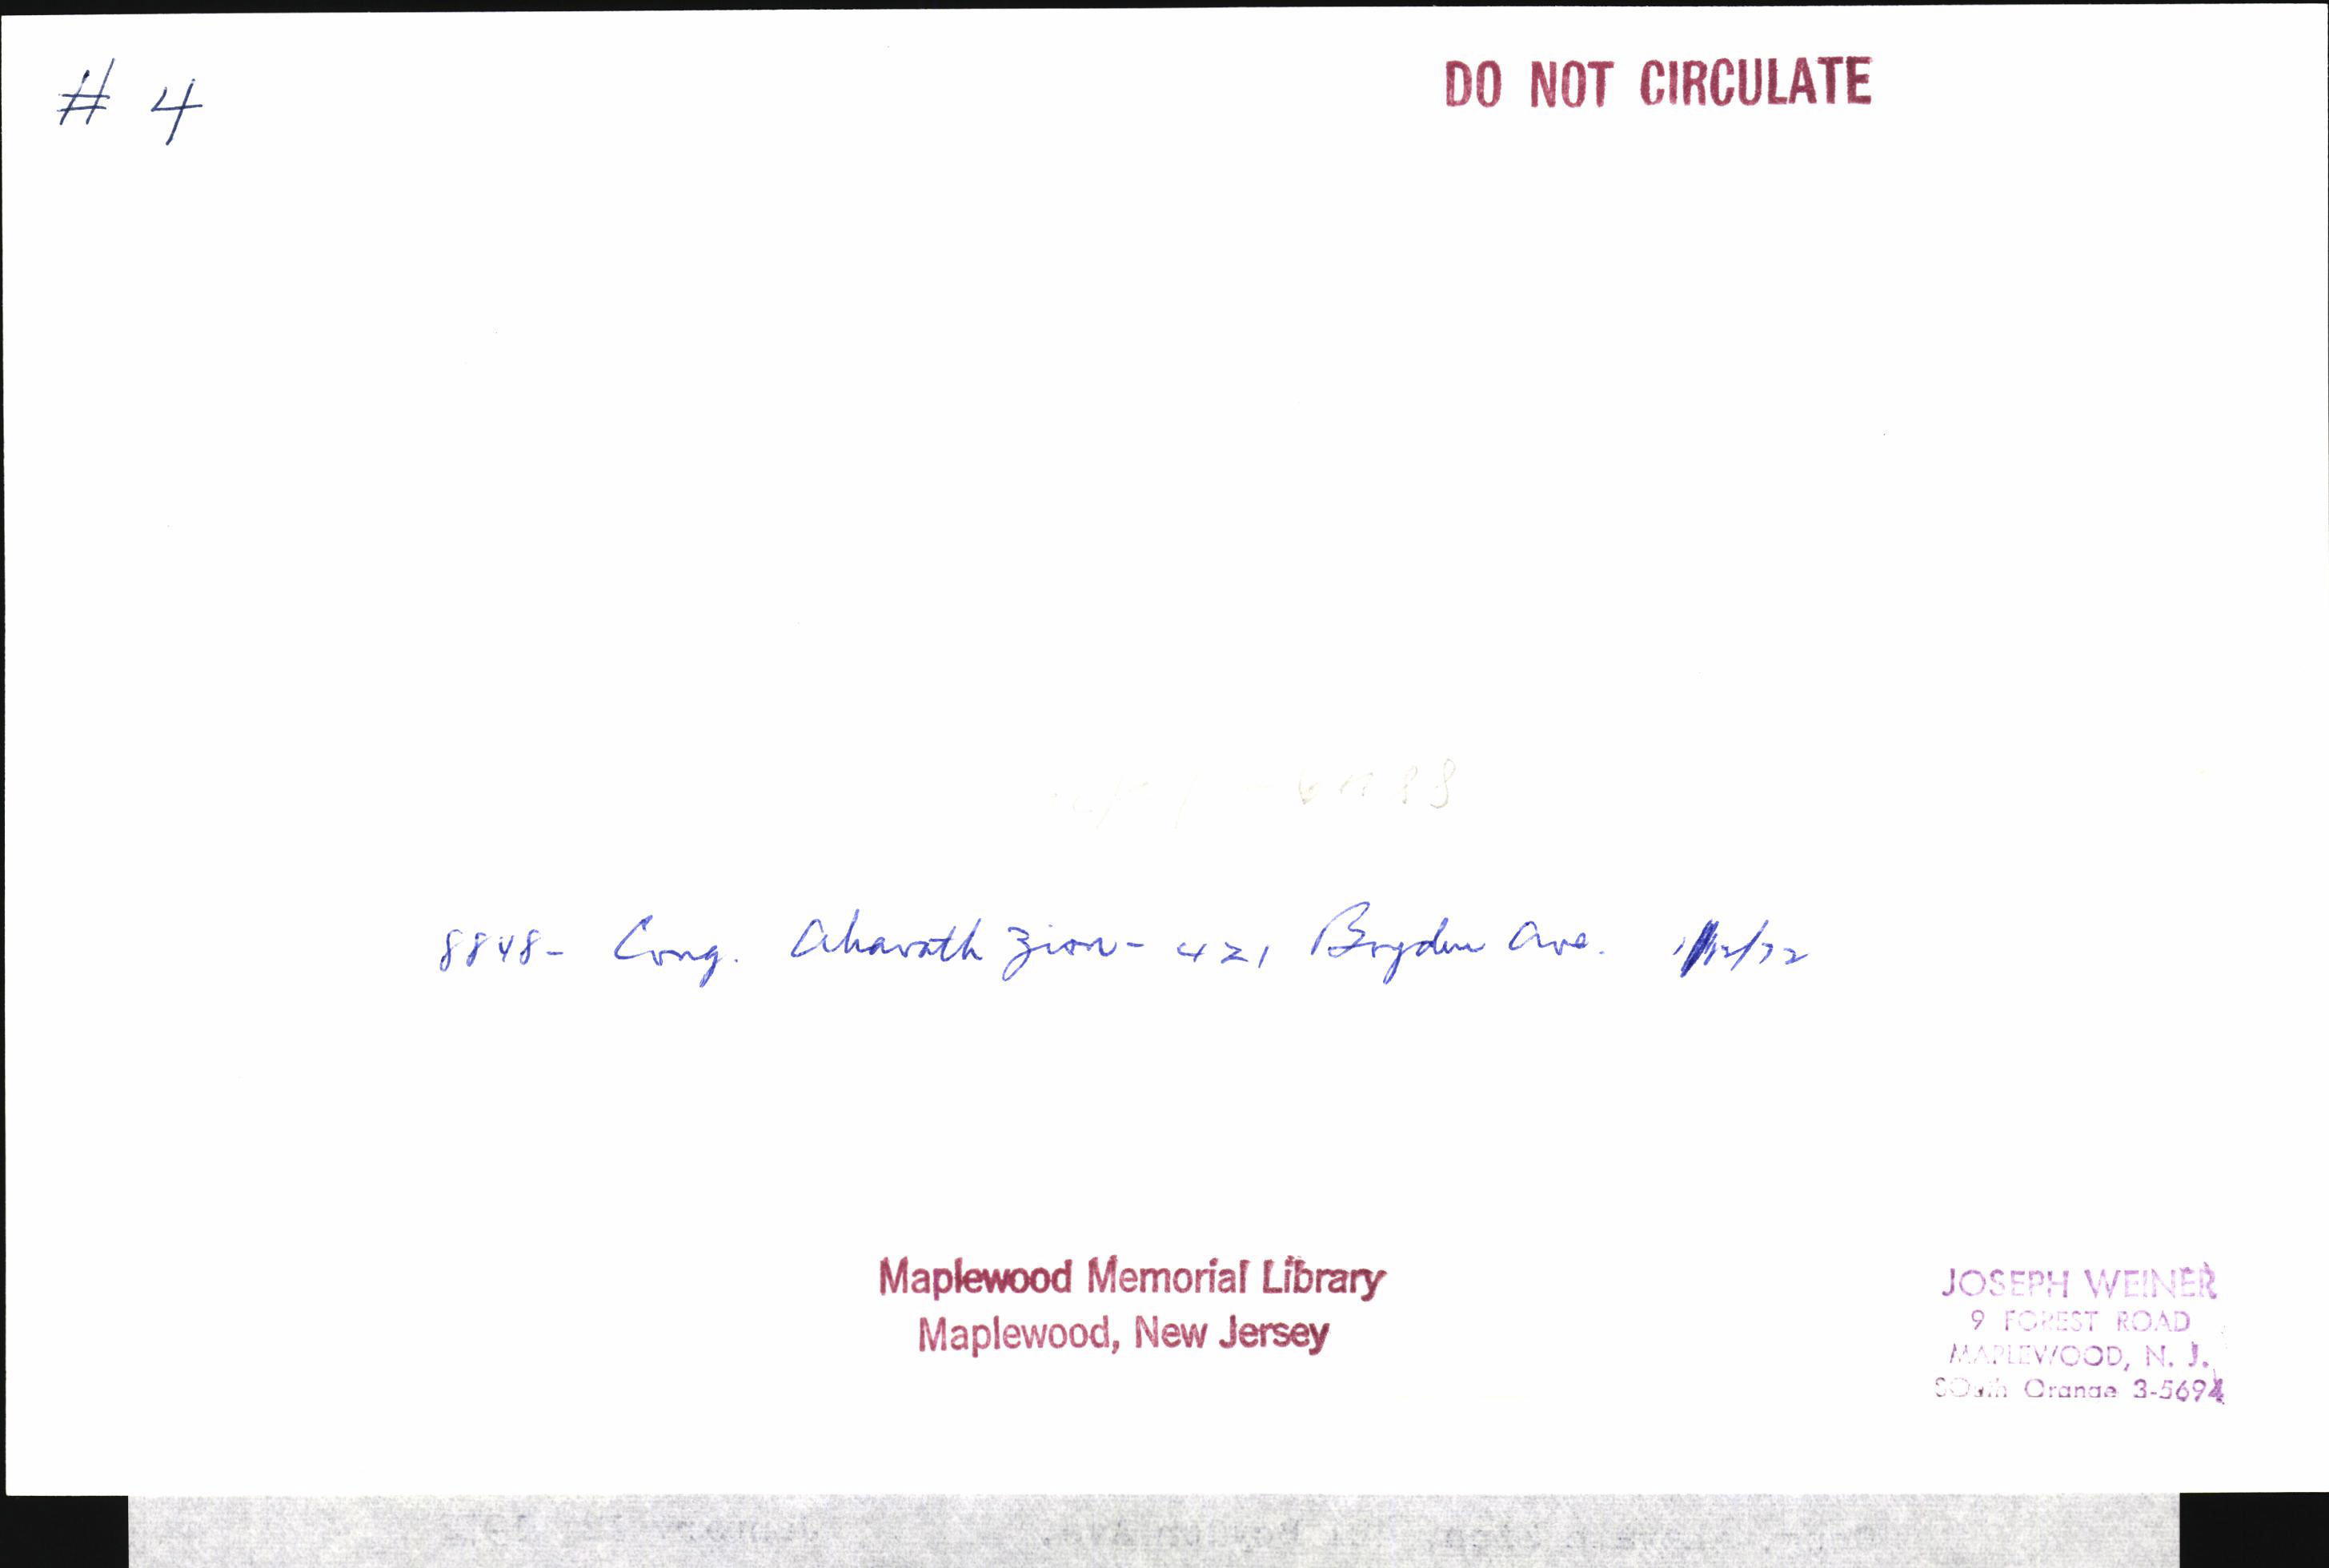 # 4
DO NOT CIRCULATE
8848- Cong. Ahavath Zion- 421 Boyden Ave. 1/12/72
Maplewood Memorial Library
Maplewood, New Jersey
JOSEPH WEINER
9 FOREST ROAD
MAPLEWOOD, N. J.
SOuth Orange 3-5694